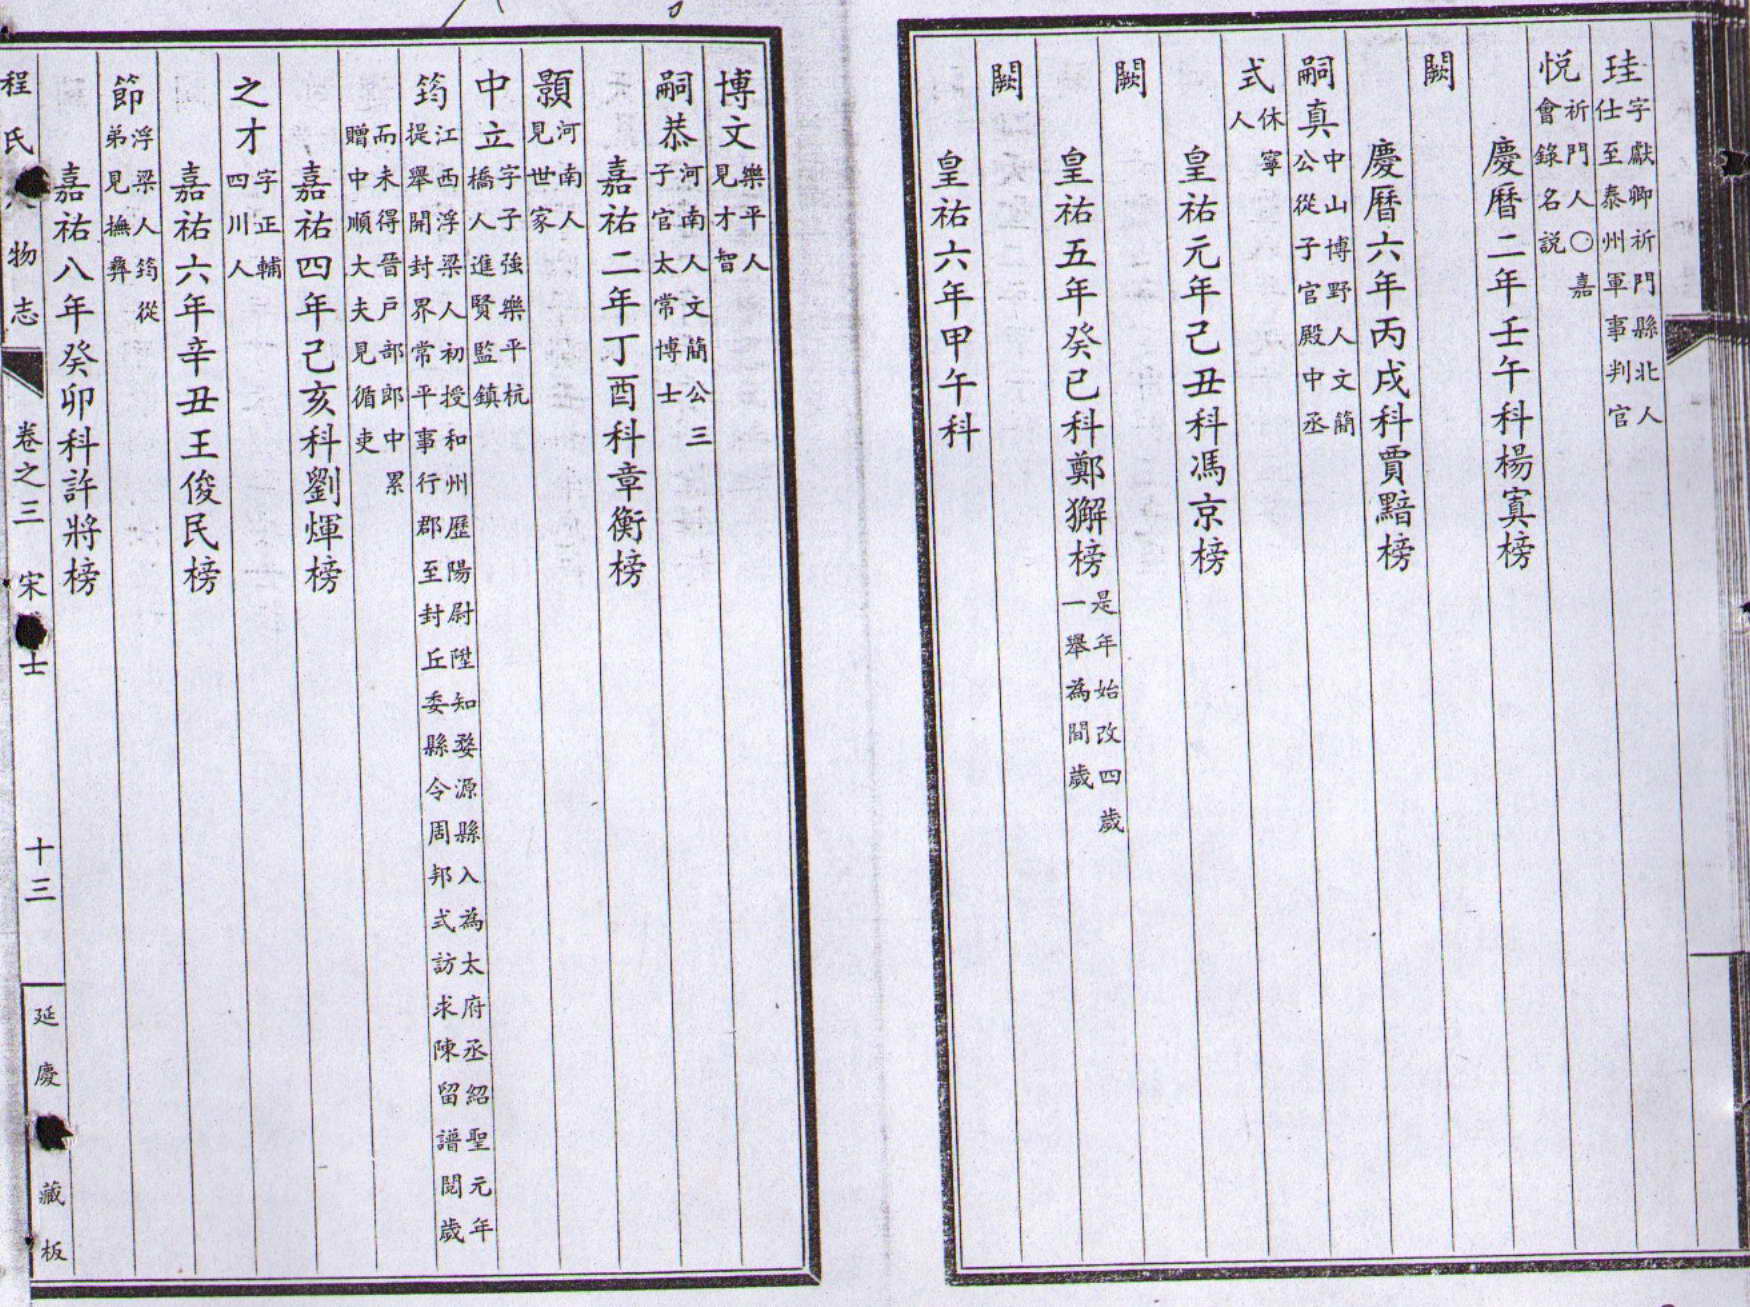 珪字獻卿祈門縣北人仕至泰州軍事判官
悅祈門人〇嘉會錄名說
慶曆二年壬午科楊寘榜
闕
慶曆六年丙戌科賈黯榜
嗣真中山博野人文簡公從子官殿中丞
式休寧人
皇祐元年己丑科馮京榜
闕
皇祐五年癸巳科鄭獬榜是年始改四歲一舉為間歲
闕
皇祐六年甲午科
博文樂平人見才智
嗣恭河南人文簡公三子官太常博士
嘉祐二年丁酉科章衡榜
顥河南人見世家
中立字子強樂平杭橋人進賢監鎮
筠江西浮梁人初授和州歷陽尉陞知婺源縣入為太府丞紹聖元年提舉開封界常平事行郡至封丘委縣令周邦式訪求陳留譜閱歲
而未得晉戶部郎中累贈中順大夫見循吏
嘉祐四年己亥科劉煇榜
之才字正輔四川人
嘉祐六年辛丑王俊民榜
節浮梁人筠從弟見撫彝
嘉祐八年癸卯科許將榜
程氏人物志 卷之三 宋 士 十三 延慶 藏板